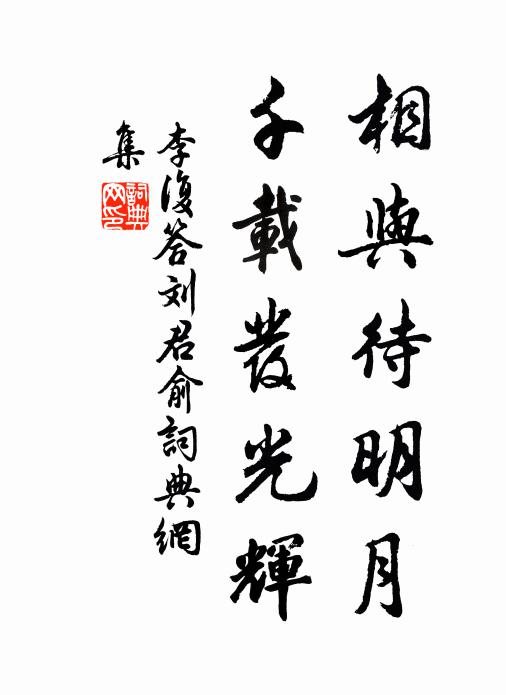 相與待明月
千載發光輝
李復答刘君俞詞典網
集
詞典
网印